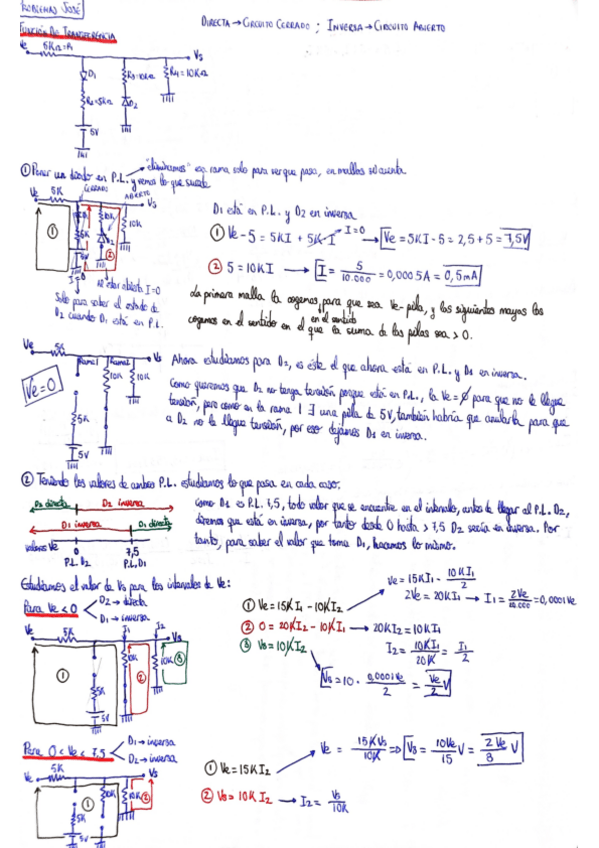 PROBLEMAS JOSÉ
DIRECTA → CIRCUITO CERRADO ; INVERSA → CIRCUITO ABIERTO
FUNCIÓN DE TRANSFERENCIA
Ve 5KΩ=R1 Vs
D1 R3=10KΩ R4=10KΩ
R2=5KΩ D2
5V
① Poner un diodo en P.L. y vemos lo que sucede
"eliminamos" esa rama solo para ver que pasa, en mallas sí cuenta.
Ve 5K CERRADO ABIERTO Vs
10K 10K
5K D2
5V
① ②
I=0 Al estar abierto I=0
Solo para saber el estado de
D2 cuando D1 está en P.L.
D1 está en P.L. y D2 en inversa
① Ve-5 = 5KI + 5K·I I=0 → Ve = 5KI-5 = 2,5+5 = 7,5V
② 5 = 10KI → I = 5/10.000 = 0,0005A = 0,5mA
La primera malla la cogemos para que sea Ve-pila, y las siguientes mayas las
cogemos en el sentido en el que la suma de las pilas sea > 0.
Ve 5K Vs
Rama 1 Rama 2
10K 10K
5K
5V
Ve=0
Ahora estudiamos para D2, es este el que ahora está en P.L. y D1 en inversa.
Como queremos que D2 no tenga tensión porque está en P.L., la Ve=0 para que no le llegue
tensión, pero como en la rama 1 ∃ una pila de 5V, también habría que anularla para que
a D2 no le llegue tensión, por eso dejamos D1 en inversa.
② Teniendo los valores de ambos P.L. estudiamos lo que pasa en cada caso:
D2 directa D2 inversa
D1 inversa D1 directa
valores Ve 0 7,5
P.L. D2 P.L. D1
Como D1 es P.L. 7,5, todo valor que se encuentre en el intervalo, antes de llegar al P.L. D2,
diremos que está en inversa, por tanto desde 0 hasta > 7,5 D2 sería en inversa. Por
tanto, para saber el valor que toma D1, hacemos lo mismo.
Estudiamos el valor de Vs para los intervalos de Ve:
Para Ve < 0 D2 → directa
D1 → inversa
Ve 5K I1 I2 Vs
10K 10K
5K
5V
① ② ③
① Ve = 15KI1 - 10KI2
② 0 = 20KI2 - 10KI1 → 20KI2 = 10KI1
③ Vs = 10KI2
I2 = 10KI1/20K = I1/2
Ve = 15KI1 - 10KI1/2
2Ve = 20KI1 → I1 = 2Ve/20.000 = 0,0001Ve
Vs = 10 · 0,0001Ve/2 = Ve/2 V
Para 0 < Ve < 7,5 D1 → inversa
D2 → inversa
Ve 5K Vs
10K 10K
5K
5V
① ②
① Ve = 15KI2
② Vs = 10KI2 → I2 = Vs/10K
Ve = 15KVs/10K ⇒ Vs = 10Ve/15 V = 2Ve/3 V